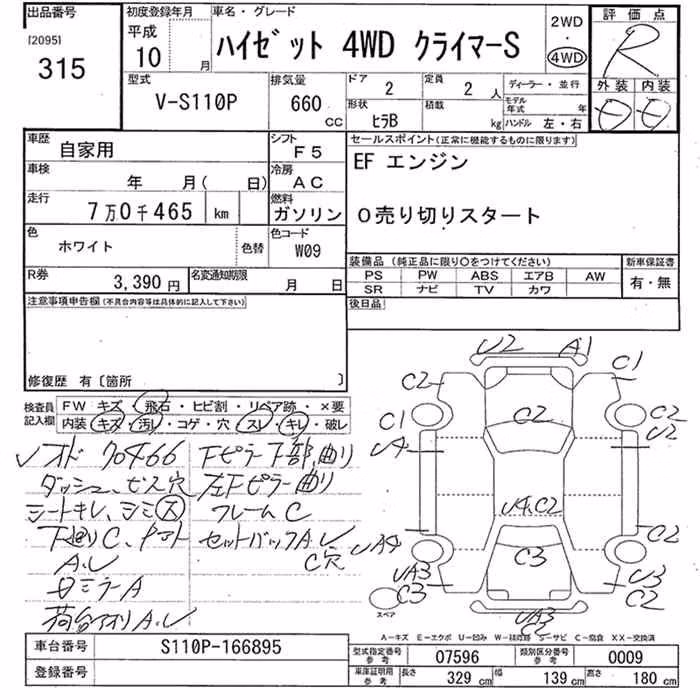 出品番号
[2095]
315
初度登録年月
平成
10 月
車名・グレード
ハイゼット 4WD クライマーS
2WD
・
4WD
評価点
R
外装 内装
型式
V-S110P
排気量
660
CC
ドア
2
定員
2 人
形状
ヒラB
積載
kg
ディーラー・並行
モデル年式 年
ハンドル 左・右
車歴
自家用
シフト
F5
車検
年 月( 日)
冷房
AC
走行
7万0千465 km
燃料
ガソリン
色
ホワイト
色替
色コード
W09
R券
3,390 円
名変通知期限
月 日
セールスポイント(正常に機能するものに限ります)
EF エンジン
0売り切りスタート
装備品 (純正品に限り○をつけてください)
PS PW ABS エアB AW
SR ナビ TV カワ
新車保証書
有・無
後日品
注意事項申告欄(不具合内容等は具体的に記入して下さい)
修復歴 有〔箇所 〕
検査員
記入欄
FW キズ・飛石・ヒビ割・リペア跡・×要
内装 キズ・汚レ・コゲ・穴・スレ・キレ・破レ
ダッシュ、ビス穴
シートキレ、シミ大
下廻りC、
A.U
ミラーA
A.U
Fピラー下部、曲り
左Fピラー曲り
フレームC
セットバックA.U
C穴
U2 A1
C2 C1
C1 C2 C2
U4 U2
U4.C2
UA4 C2
C3
UA3 U3
C3 C2
UA3
C
スペア
A-キズ E-エクボ U-凹み W-補修跡 S-サビ C-腐食 XX-交換済
車台番号
S110P-166895
登録番号
型式指定番号
参考
07596
類別区分番号
参考
0009
車庫証明用
参考
長さ 329 cm 幅 139 cm 高さ 180 cm